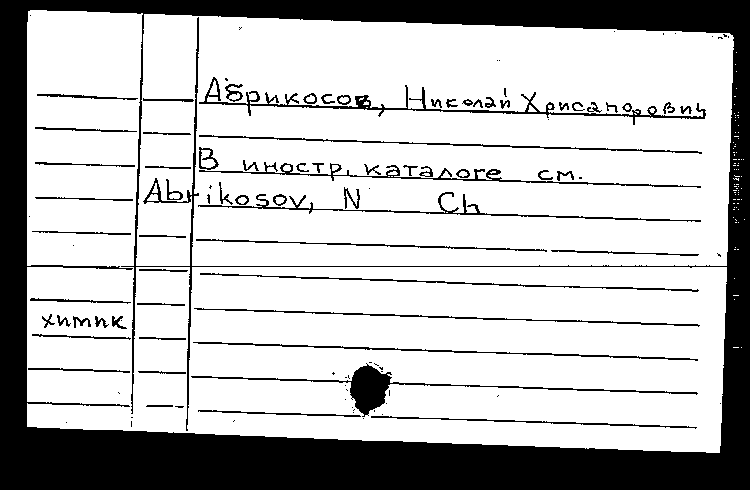 Абрикосов, Николай Хрисанфович
В иностр. каталоге см.
Abrikosov, N Ch
химик